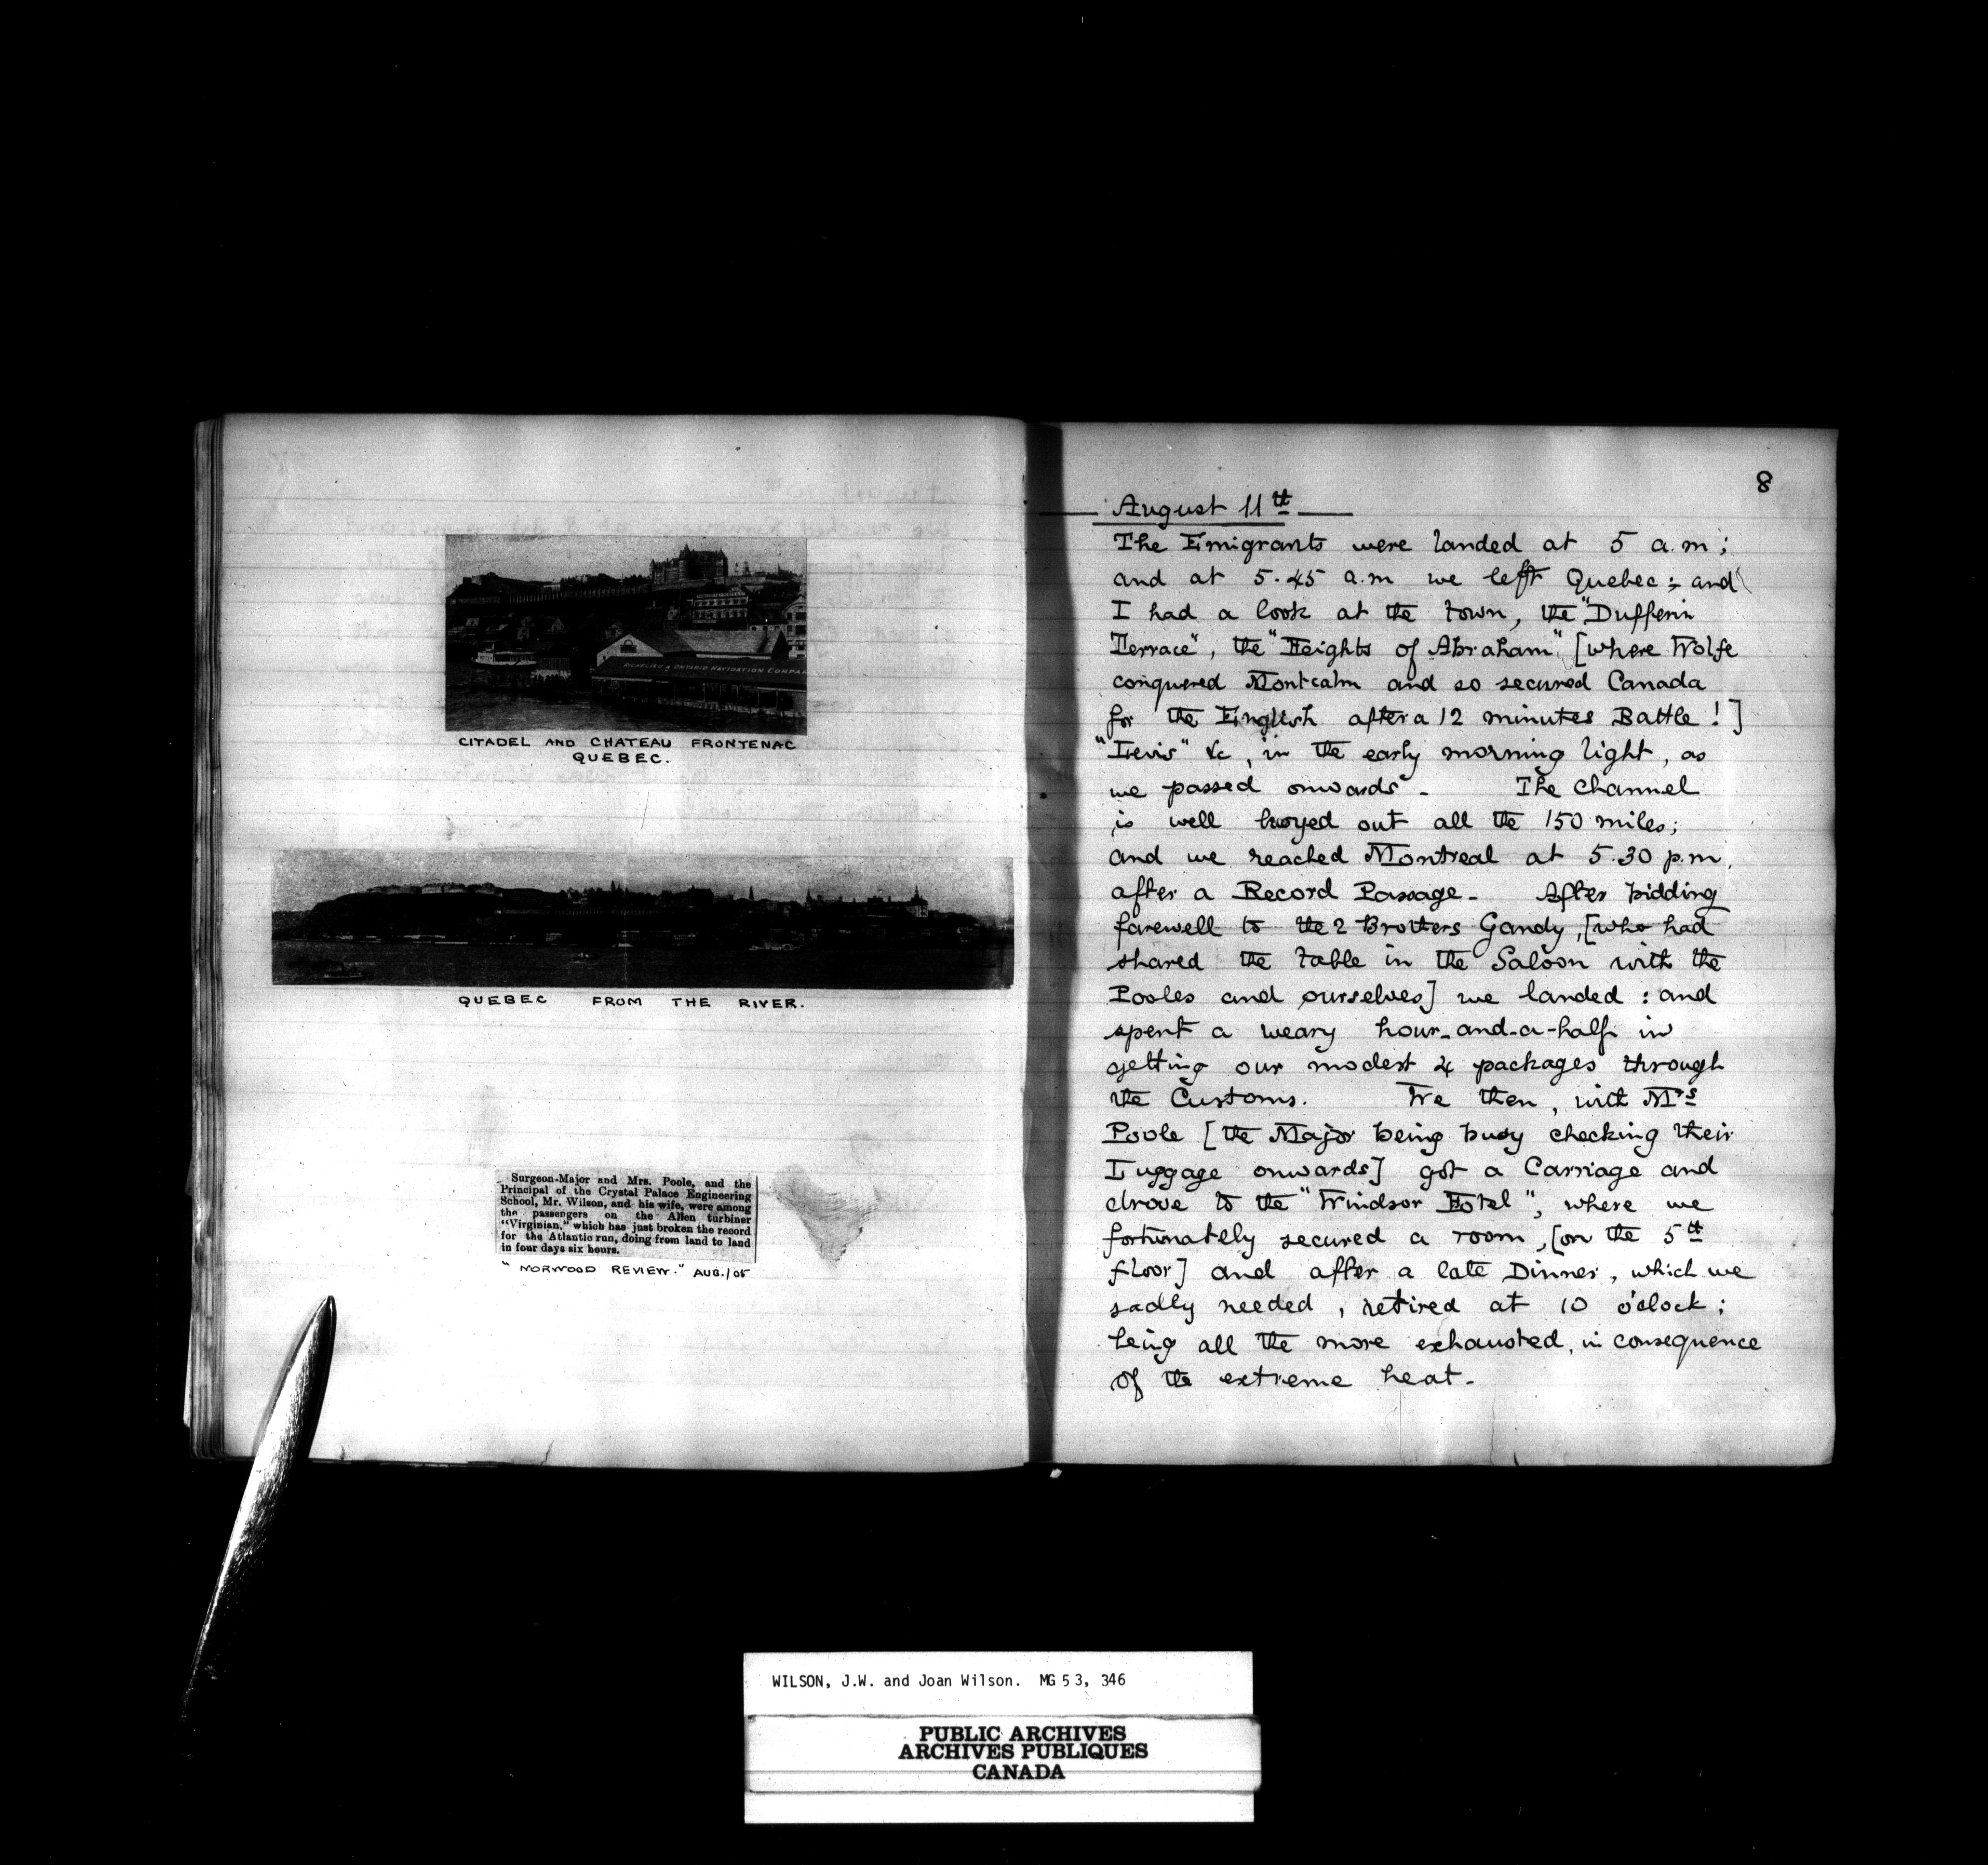 RICHELIEU & ONTARIO NAVIGATION COMPAN
CITADEL AND CHATEAU FRONTENAC
QUEBEC.
QUEBEC FROM THE RIVER.
Surgeon-Major and Mrs. Poole, and the
Principal of the Crystal Palace Engineering
School, Mr. Wilson, and his wife, were among
the passengers on the Allen turbiner
"Virginian," which has just broken the record
for the Atlantic run, doing from land to land
in four days six hours.
"NORWOOD REVIEW." AUG./05
8
August 11th
The Emigrants were landed at 5 a.m;
and at 5.45 a.m we left Quebec; and
I had a look at the town, the "Dufferin
Terrace", the "Heights of Abraham", [where Wolfe
conquered Montcalm and so secured Canada
for the English after a 12 minutes Battle!]
"Levis" &c, in the early morning light, as
we passed onwards - The Channel
is well buoyed out all the 150 miles;
and we reached Montreal at 5.30 p.m,
after a Record Passage - After bidding
farewell to the 2 Brothers Gandy, [who had
shared the table in the Saloon with the
Pooles and ourselves] we landed: and
spent a weary hour-and-a-half in
getting our modest 4 packages through
the Customs. We then, with Mrs
Poole [the Major being busy checking their
Luggage onwards] got a Carriage and
drove to the "Windsor Hotel", where we
fortunately secured a room, [on the 5th
floor] and after a late Dinner, which we
sadly needed, retired at 10 o'clock;
being all the more exhausted, in consequence
of the extreme heat -
WILSON, J.W. and Joan Wilson. MG 53, 346
PUBLIC ARCHIVES
ARCHIVES PUBLIQUES
CANADA